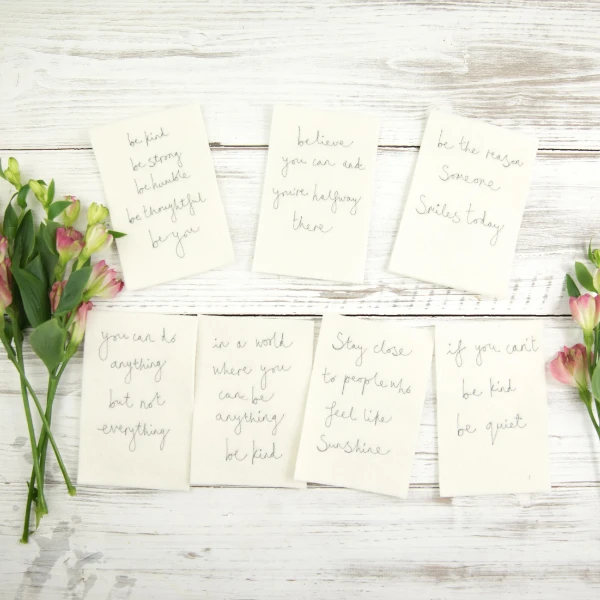 be kind
be strong
be humble
be thoughtful
be you
believe
you can and
you're halfway
there
be the reason
Someone
Smiles today
you can do
anything
but not
everything
in a world
where you
can be
anything
be kind
Stay close
to people who
feel like
Sunshine
if you can't
be kind
be quiet